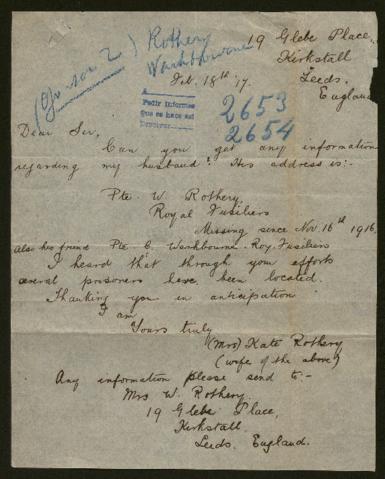 19 Glebe Place,
Kirkstall
Leeds.
England
Rothery
Washbourne
Feb. 18th '17.
A
Pedir informes
Que se hace así
2653
2654
Dear Sir,
Can you get any information
regarding my husband? His address is:-
Pte. W. Rothery
Royal Fusiliers
Missing since Nov 16th 1916.
Also his friend Pte C. Washbourne. Roy. Fusiliers
I heard that through your efforts
several prisoners have been located.
Thanking you in anticipation
I am
Yours truly
(Mrs) Kate Rothery
(wife of the above)
Any information please send to:-
Mrs W. Rothery.
19 Glebe Place,
Kirkstall.
Leeds. England.